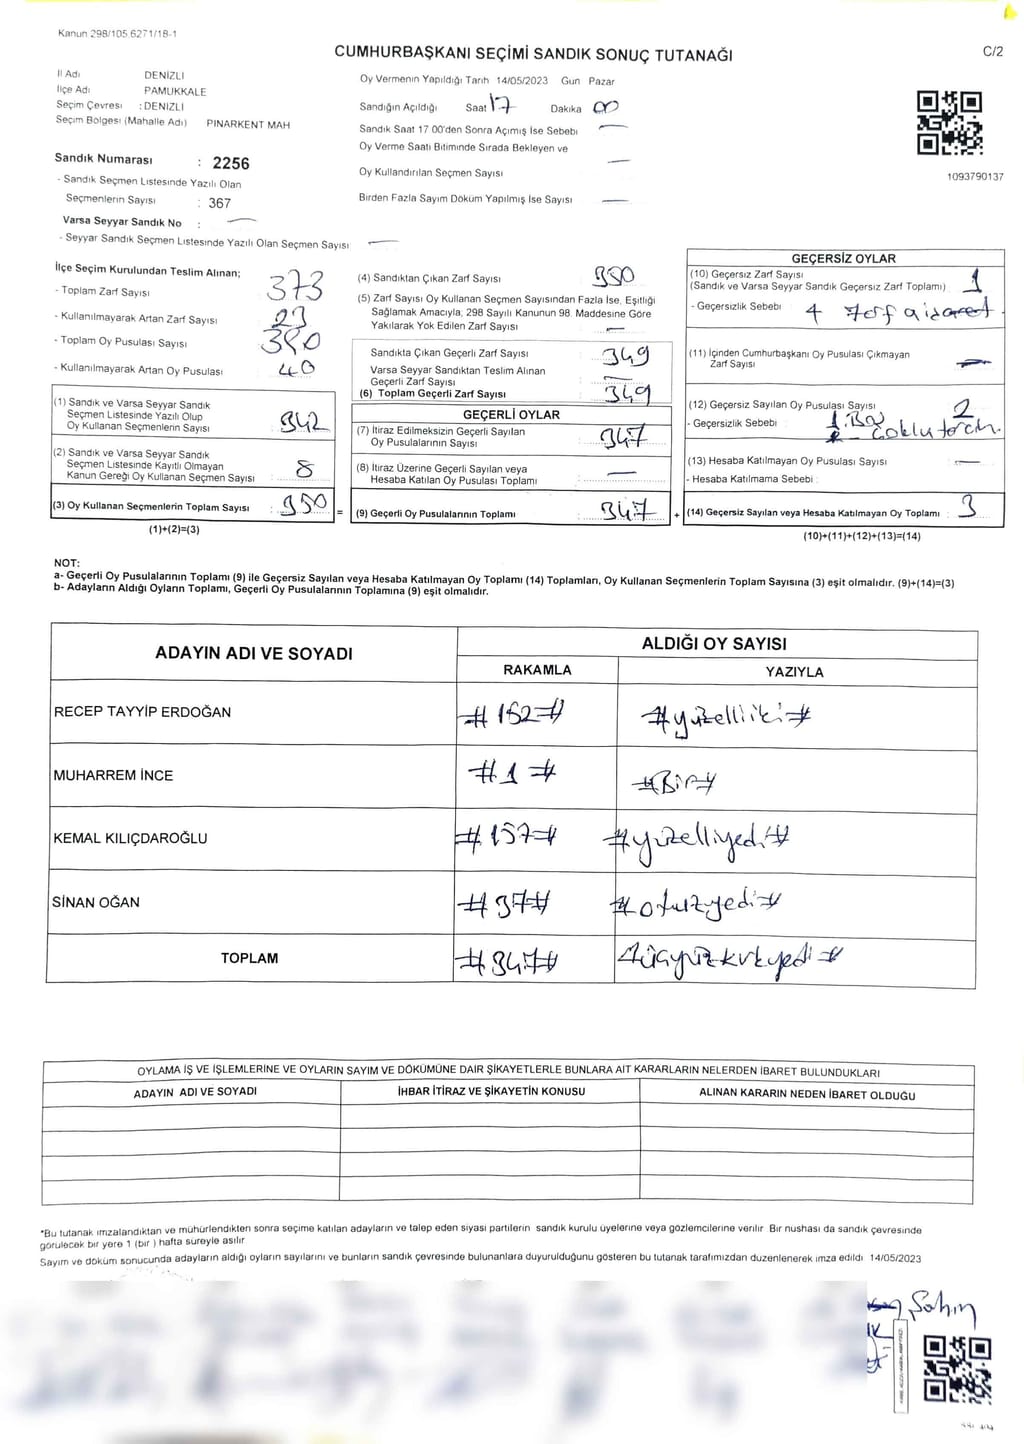 Kanun 298/105 6271/18-1
CUMHURBAŞKANI SEÇİMİ SANDIK SONUÇ TUTANAĞI
C/2
İl Adı DENİZLİ
İlçe Adı PAMUKKALE
Seçim Çevresi : DENİZLİ
Seçim Bölgesi (Mahalle Adı) PINARKENT MAH
Oy Vermenin Yapıldığı Tarih 14/05/2023 Gün Pazar
Sandığın Açıldığı Saat 17 Dakika 00
Sandık Saat 17 00'den Sonra Açımış İse Sebebi —
Oy Verme Saati Bitiminde Sırada Bekleyen ve
Oy Kullandırılan Seçmen Sayısı —
Birden Fazla Sayım Döküm Yapılmış İse Sayısı —
1093790137
Sandık Numarası : 2256
- Sandık Seçmen Listesinde Yazılı Olan
Seçmenlerin Sayısı : 367
Varsa Seyyar Sandık No : —
- Seyyar Sandık Seçmen Listesinde Yazılı Olan Seçmen Sayısı —
İlçe Seçim Kurulundan Teslim Alınan;
- Toplam Zarf Sayısı 373
- Kullanılmayarak Artan Zarf Sayısı 23
- Toplam Oy Pusulası Sayısı 390
- Kullanılmayarak Artan Oy Pusulası 40
(1) Sandık ve Varsa Seyyar Sandık
Seçmen Listesinde Yazılı Olup
Oy Kullanan Seçmenlerin Sayısı : 342
(2) Sandık ve Varsa Seyyar Sandık
Seçmen Listesinde Kayıtlı Olmayan
Kanun Gereği Oy Kullanan Seçmen Sayısı : 8
(3) Oy Kullanan Seçmenlerin Toplam Sayısı : 350 =
(1)+(2)=(3)
(4) Sandıktan Çıkan Zarf Sayısı : 350
(5) Zarf Sayısı Oy Kullanan Seçmen Sayısından Fazla İse, Eşitliği
Sağlamak Amacıyla, 298 Sayılı Kanunun 98. Maddesine Göre
Yakılarak Yok Edilen Zarf Sayısı : —
Sandıkta Çıkan Geçerli Zarf Sayısı : 349
Varsa Seyyar Sandıktan Teslim Alınan
Geçerli Zarf Sayısı : —
(6) Toplam Geçerli Zarf Sayısı : 349
GEÇERLİ OYLAR
(7) İtiraz Edilmeksizin Geçerli Sayılan
Oy Pusulalarının Sayısı : 347
(8) İtiraz Üzerine Geçerli Sayılan veya
Hesaba Katılan Oy Pusulası Toplamı : —
(9) Geçerli Oy Pusulalarının Toplamı : 347 +
GEÇERSİZ OYLAR
(10) Geçersiz Zarf Sayısı
(Sandık ve Varsa Seyyar Sandık Geçersiz Zarf Toplamı) : 1
- Geçersizlik Sebebi
(11) İçinden Cumhurbaşkanı Oy Pusulası Çıkmayan
Zarf Sayısı : —
(12) Geçersiz Sayılan Oy Pusulası Sayısı : 2
- Geçersizlik Sebebi : 1. Boş
Çoklu tercih.
(13) Hesaba Katılmayan Oy Pusulası Sayısı : —
- Hesaba Katılmama Sebebi :
(14) Geçersiz Sayılan veya Hesaba Katılmayan Oy Toplamı : 3
(10)+(11)+(12)+(13)=(14)
NOT:
a- Geçerli Oy Pusulalarının Toplamı (9) ile Geçersiz Sayılan veya Hesaba Katılmayan Oy Toplamı (14) Toplamları, Oy Kullanan Seçmenlerin Toplam Sayısına (3) eşit olmalıdır. (9)+(14)=(3)
b- Adayların Aldığı Oyların Toplamı, Geçerli Oy Pusulalarının Toplamına (9) eşit olmalıdır.
ADAYIN ADI VE SOYADI
ALDIĞI OY SAYISI
RAKAMLA YAZIYLA
RECEP TAYYİP ERDOĞAN #152# #yüzelliiki#
MUHARREM İNCE #1# #Bir#
KEMAL KILIÇDAROĞLU #157# #yüzelliyedi#
SİNAN OĞAN #37# #otuzyedi#
TOPLAM #347# #üçyüzkırkyedi#
OYLAMA İŞ VE İŞLEMLERİNE VE OYLARIN SAYIM VE DÖKÜMÜNE DAİR ŞİKAYETLERLE BUNLARA AİT KARARLARIN NELERDEN İBARET BULUNDUKLARI
ADAYIN ADI VE SOYADI İHBAR İTİRAZ VE ŞİKAYETİN KONUSU ALINAN KARARIN NEDEN İBARET OLDUĞU
*Bu tutanak imzalandıktan ve mühürlendikten sonra seçime katılan adayların ve talep eden siyasi partilerin sandık kurulu üyelerine veya gözlemcilerine verilir Bir nushası da sandık çevresinde
görülecek bir yere 1 (bir ) hafta süreyle asılır
Sayım ve döküm sonucunda adayların aldığı oyların sayılarını ve bunların sandık çevresinde bulunanlara duyurulduğunu gösteren bu tutanak tarafımızdan düzenlenerek imza edildi 14/05/2023
Şahin